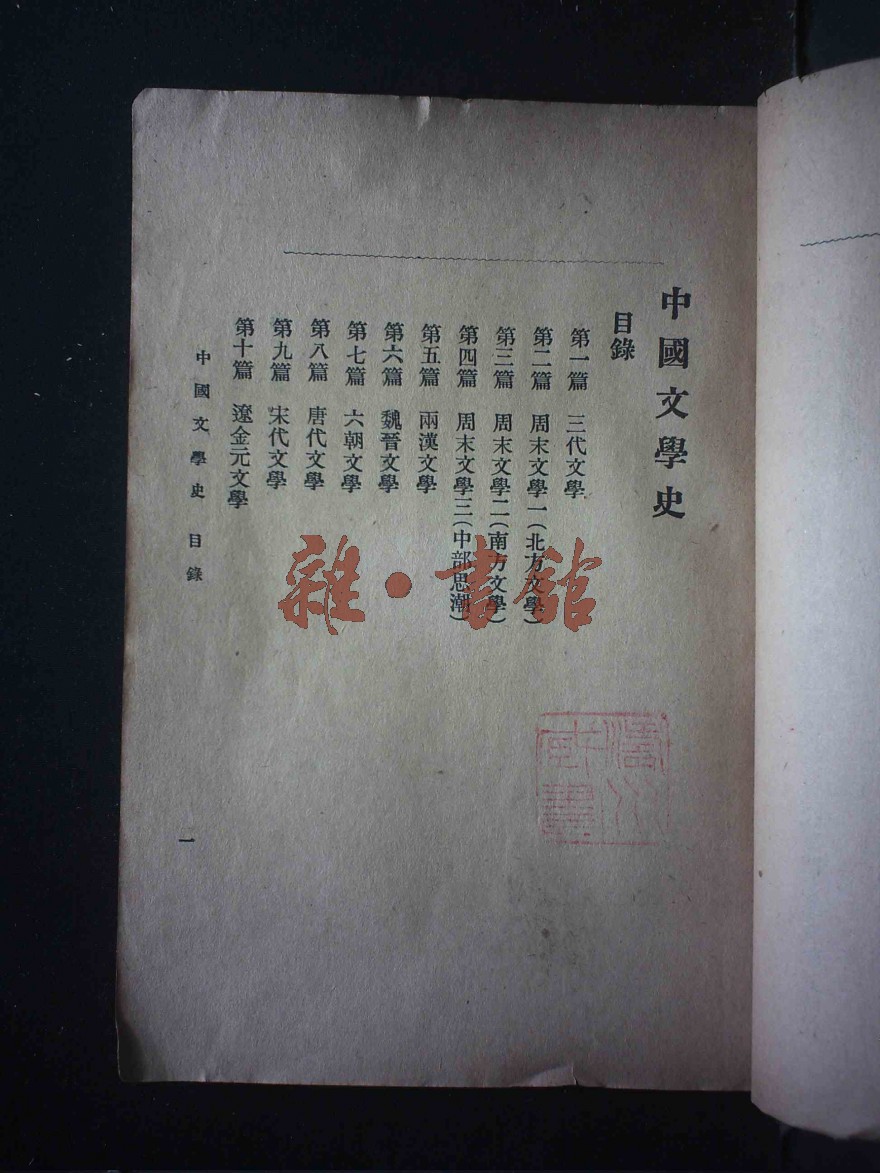 中國文學史
目錄
第一篇 三代文學
第二篇 周末文學一(北方文學)
第三篇 周末文學二(南方文學)
第四篇 周末文學三(中部思潮)
第五篇 兩漢文學
第六篇 魏晉文學
第七篇 六朝文學
第八篇 唐代文學
第九篇 宋代文學
第十篇 遼金元文學
中國文學史 目錄
一
雜·書館